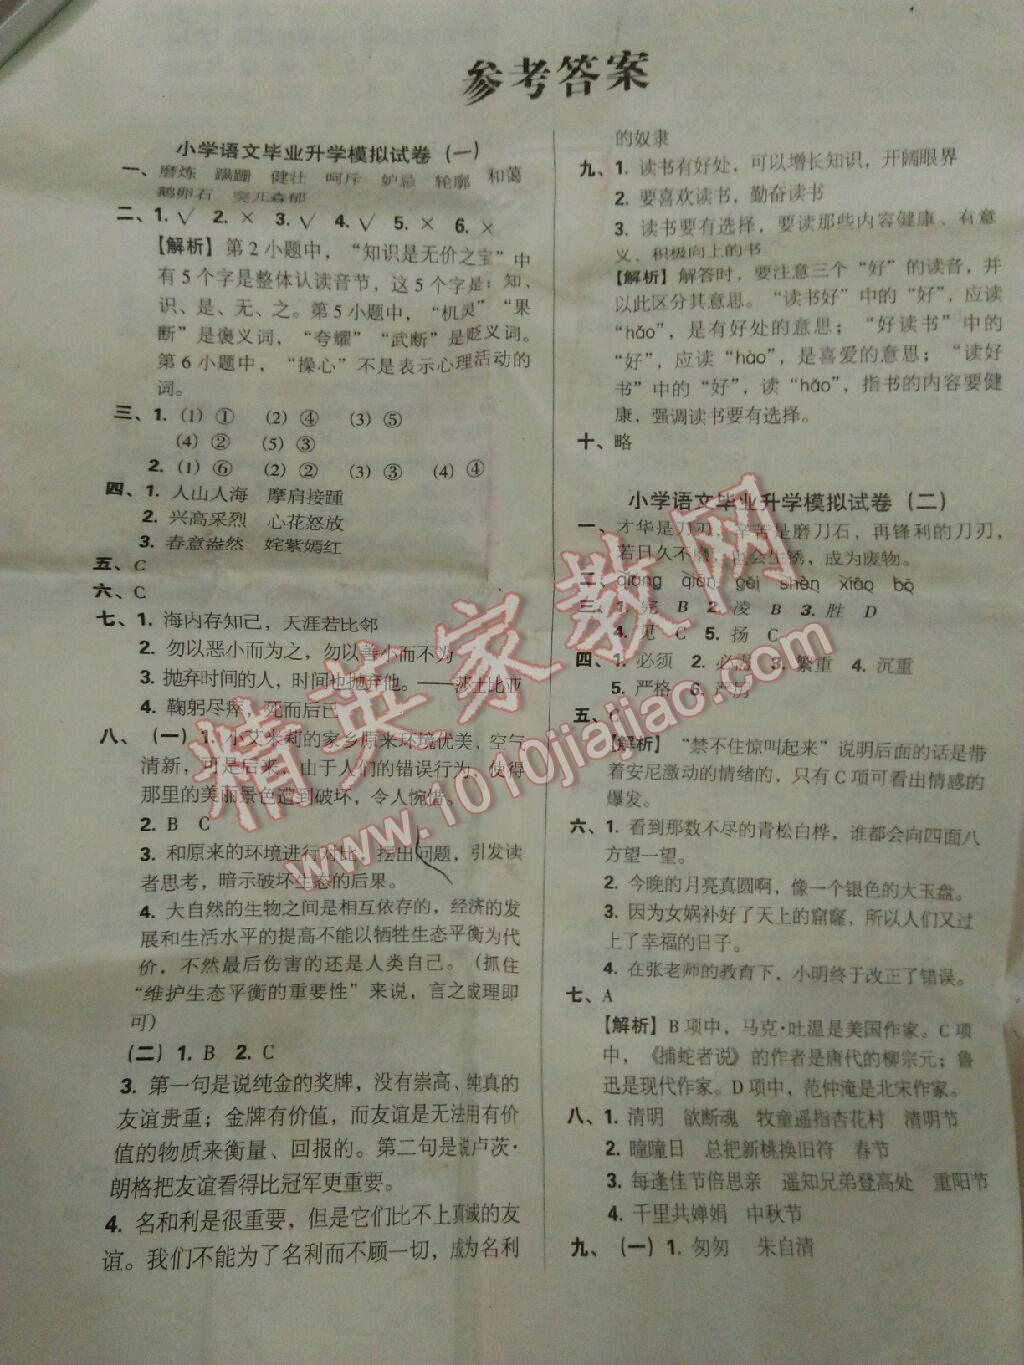 参考答案
小学语文毕业升学模拟试卷（一）
一、磨炼　蹒跚　健壮　呵斥　妒忌　轮廓　和蔼
鹅卵石　突兀森郁
二、1. √　2. ×　3. √　4. √　5. ×　6. ×
【解析】第 2 小题中，“知识是无价之宝”中
有 5 个字是整体认读音节，这 5 个字是：知、
识、是、无、之。第 5 小题中，“机灵”“果
断”是褒义词，“夸耀”“武断”是贬义词。
第 6 小题中，“操心”不是表示心理活动的
词。
三、1. (1) ①　(2) ④　(3) ⑤
(4) ②　(5) ③
2. (1) ⑥　(2) ②　(3) ③　(4) ④
四、1. 人山人海　摩肩接踵
2. 兴高采烈　心花怒放
3. 春意盎然　姹紫嫣红
五、C
六、C
七、1. 海内存知己，天涯若比邻
2. 勿以恶小而为之，勿以善小而不为
3. 抛弃时间的人，时间也抛弃他。——莎士比亚
4. 鞠躬尽瘁，死而后已
八、（一）1. 小艾米莉的家乡原来环境优美、空气
清新，可是后来，由于人们的错误行为，使得
那里的美丽景色遭到破坏，令人惋惜。
2. B　C
3. 和原来的环境进行对比，摆出问题，引发读
者思考，暗示破坏生态的后果。
4. 大自然的生物之间是相互依存的，经济的发
展和生活水平的提高不能以牺牲生态平衡为代
价，不然最后伤害的还是人类自己。（抓住
“维护生态平衡的重要性”来说，言之成理即
可）
（二）1. B　2. C
3. 第一句是说纯金的奖牌，没有崇高、纯真的
友谊贵重；金牌有价值，而友谊是无法用有价
值的物质来衡量、回报的。第二句是说卢茨·
朗格把友谊看得比冠军更重要。
4. 名和利是很重要，但是它们比不上真诚的友
谊。我们不能为了名利而不顾一切，成为名利
的奴隶
九、1. 读书有好处，可以增长知识，开阔眼界
2. 要喜欢读书，勤奋读书
3. 读书要有选择，要读那些内容健康、有意
义、积极向上的书
【解析】解答时，要注意三个“好”的读音，并
以此区分其意思。“读书好”中的“好”，应读
“hǎo”，是有好处的意思；“好读书”中的
“好”，应读“hào”，是喜爱的意思；“读好
书”中的“好”，读“hǎo”，指书的内容要健
康，强调读书要有选择。
十、略
小学语文毕业升学模拟试卷（二）
一、才华是刀刃，辛苦是磨刀石，再锋利的刀刃，
若日久不磨，也会生锈，成为废物。
二、qiáng　qiān　gěi　shèn　xiāo　bō
三、1. 完　B　2. 凌　B　3. 胜　D
4. 见　C　5. 扬　C
四、1. 必须　2. 必需　3. 繁重　4. 沉重
5. 严格　6. 严厉
五、C
【解析】“禁不住惊叫起来”说明后面的话是带
着安尼激动的情绪的，只有 C 项可看出情感的
爆发。
六、1. 看到那数不尽的青松白桦，谁都会向四面八
方望一望。
2. 今晚的月亮真圆啊，像一个银色的大玉盘。
3. 因为女娲补好了天上的窟窿，所以人们又过
上了幸福的日子。
4. 在张老师的教育下，小明终于改正了错误。
七、A
【解析】B 项中，马克·吐温是美国作家。C 项
中，《捕蛇者说》的作者是唐代的柳宗元；鲁
迅是现代作家。D 项中，范仲淹是北宋作家。
八、1. 清明　欲断魂　牧童遥指杏花村　清明节
2. 曈曈日　总把新桃换旧符　春节
3. 每逢佳节倍思亲　遥知兄弟登高处　重阳节
4. 千里共婵娟　中秋节
九、（一）1. 匆匆　朱自清
精英家教网
www.1010jiajiao.com